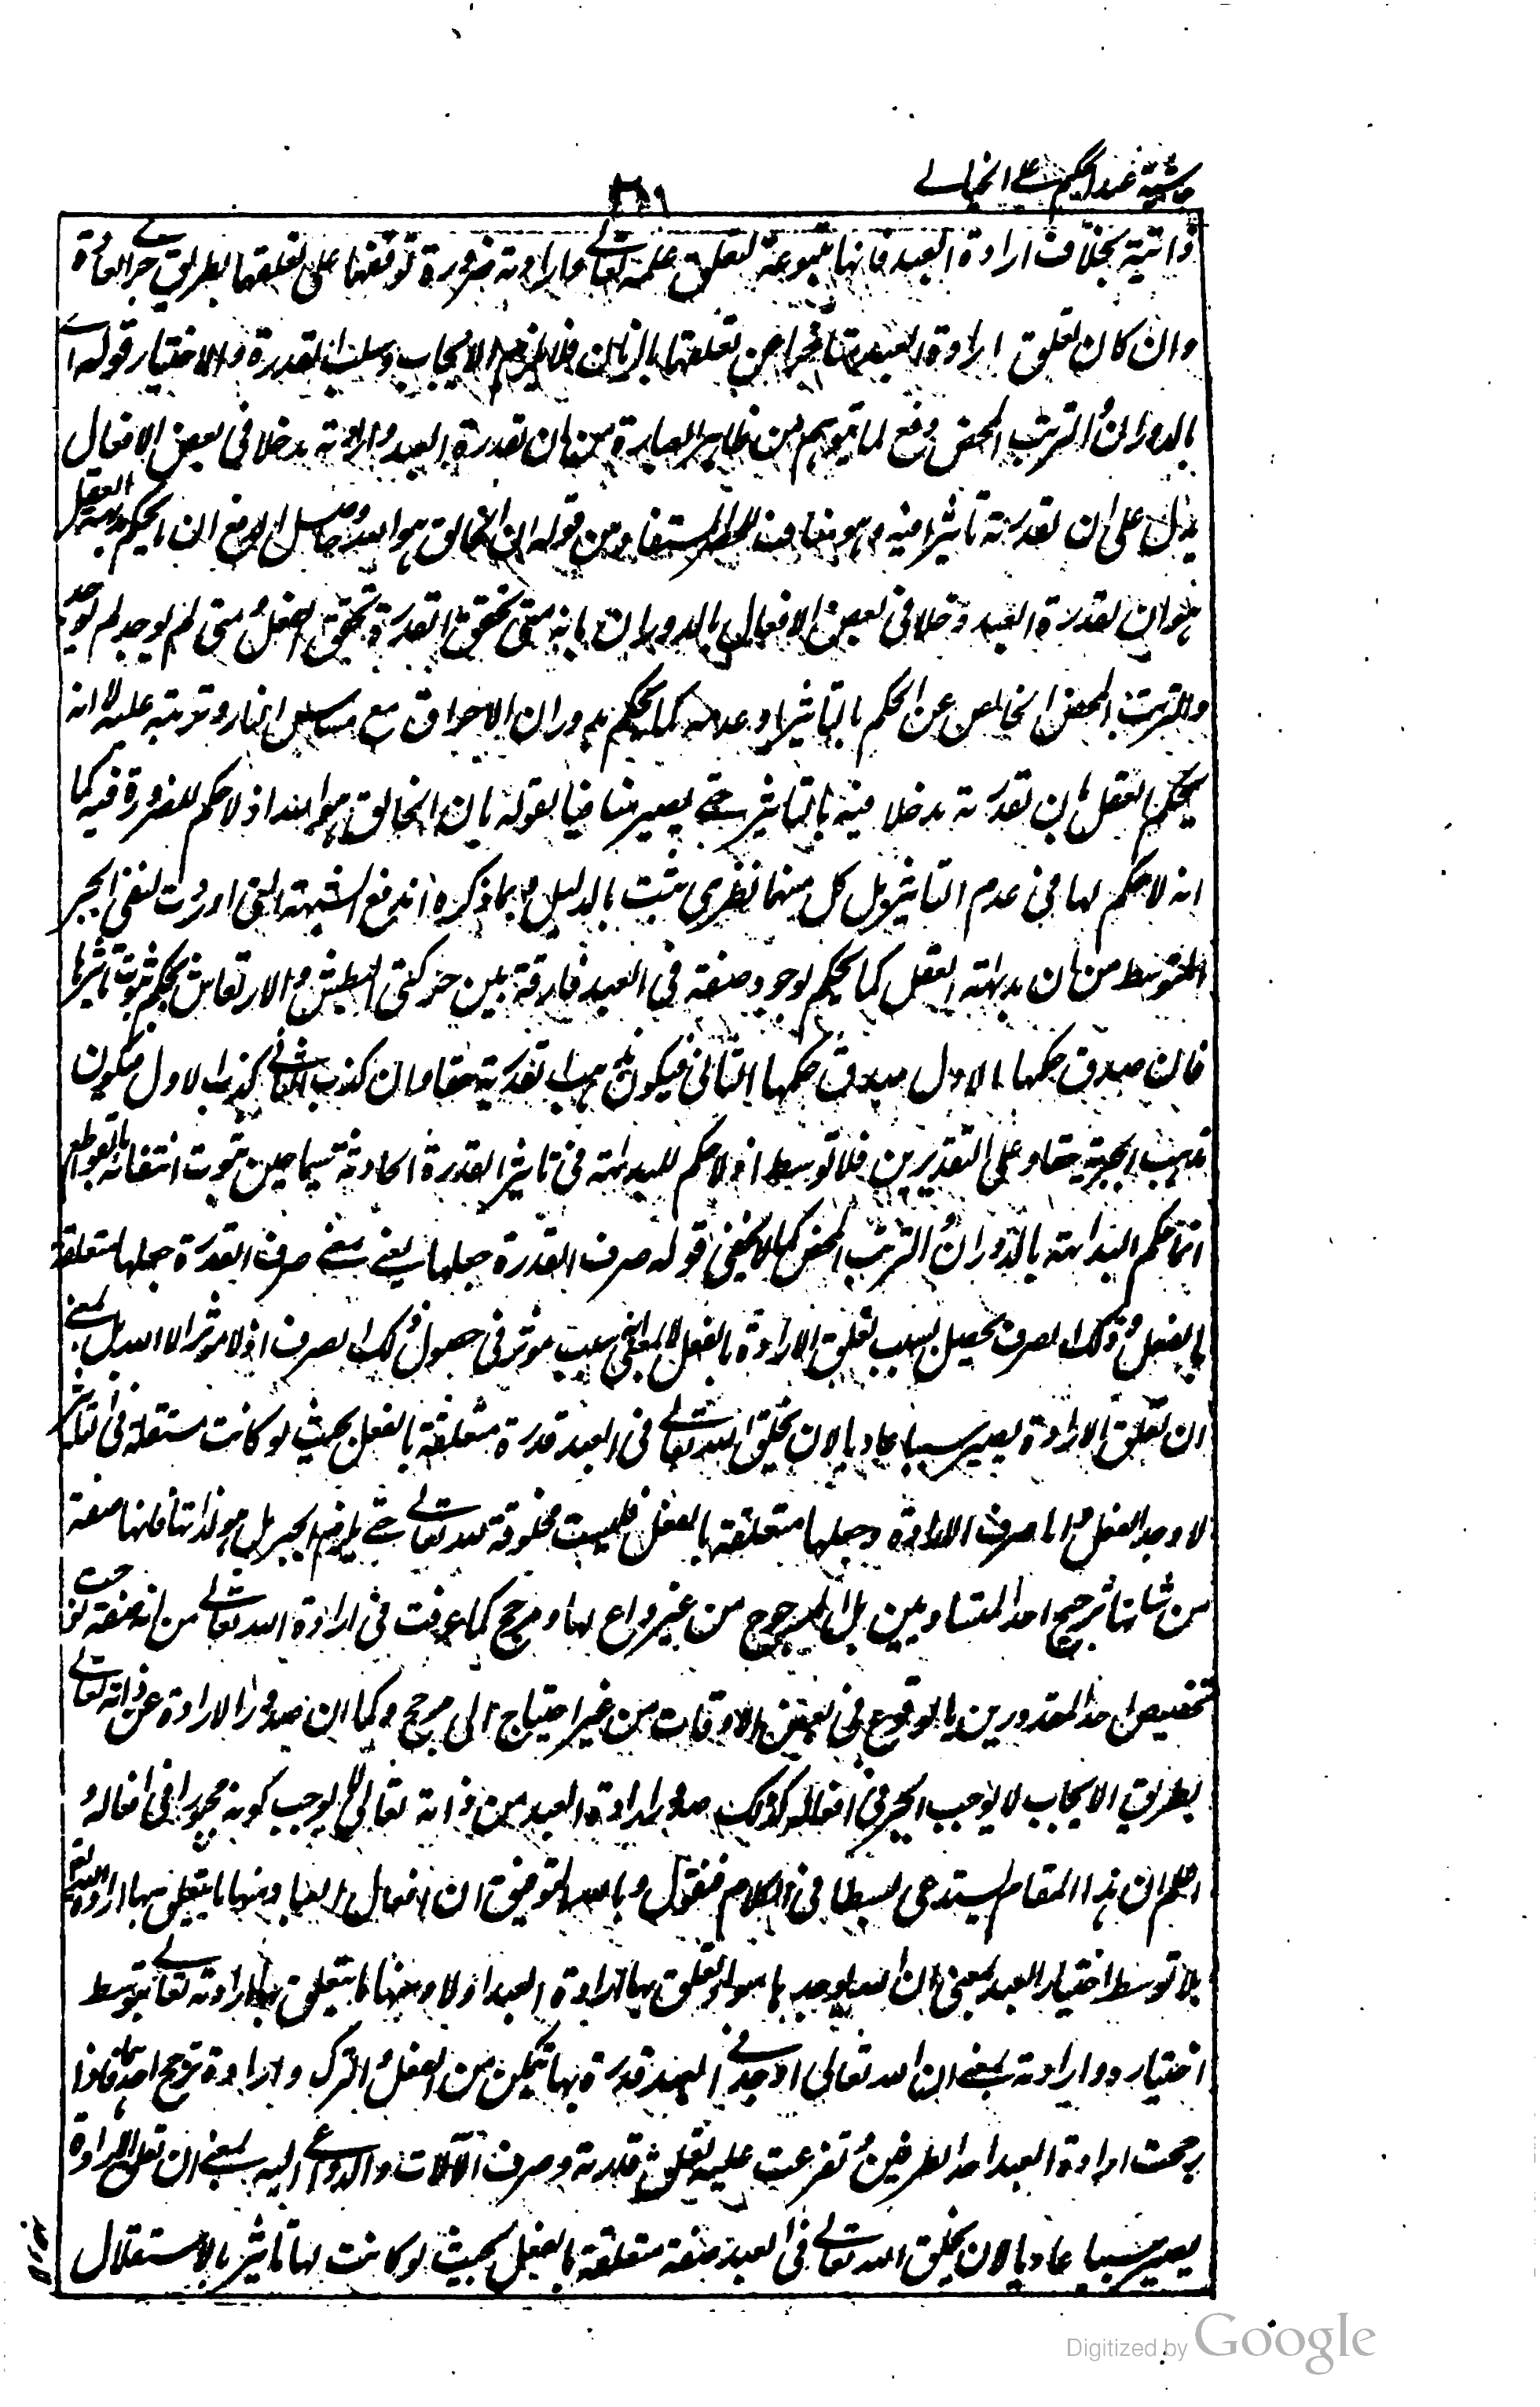 حاشية عبد الحكيم على الخيالي
ذاتية بخلاف ارادة العبد فانها متبوعة لتعلق علمه تعالى وارادته ضرورة توقفها على تعلقها بطريق جرى العادة
وان كان تعلق ارادة العبد متاخرا عن تعلقها بالزمان فلا يلزم الايجاب وسلب القدرة والاختيار قوله اى
بالدوران والترتب المحض دفع لما يتوهم من ظاهر العبارة من ان لقدرة العبد وارادته مدخلا فى بعض الافعال
يدل على ان لقدرته تاثيرا فيه وهو مناف للحصر المستفاد من قوله ان الخالق هو الله وحاصل الدفع ان الحكم بديهة العقل
هو ان لقدرة العبد دخلا فى بعض الافعال بالدوران بانه متى تحقق القدرة تحقق الفعل ومتى لم يوجد لم يوجد
والترتب المحض الخالص عن الحكم بالتاثير او عدمه كما يحكم بدوران الاحراق مع مساس النار وترتبه عليه لا انه
يحكم العقل بان لقدرته مدخلا فيه بالتاثير حتى يصير منافيا لقوله بان الخالق هو الله اذ لا حكم للضرورة فيه كما
انه لا حكم لها فى عدم التاثير بل كل منهما نظرى يثبت بالدليل وبما ذكره اندفع الشبهة التى اوردت لنفى الجبر
المتوسط من ان بداهة العقل كما يحكم بوجود صفة فى العبد فارقة بين حركتى البطش والارتعاش يحكم بثبوت تاثيرها
فان صدق حكمها الاول صدق حكمها الثانى فيكون مذهب القدرية حقا وان كذب الثانى كذب الاول فيكون
مذهب الجبرية حقا وعلى التقديرين فلا توسط اذ لا حكم للبداهة فى تاثير القدرة الحادثة سيما حين ثبوت انتفائه بالقواطع
انما حكم البداهة بالدوران والترتب المحض كما لا يخفى قوله صرف القدرة جعلها يعنى معنى صرف القدرة جعلها متعلقة
بالفعل وذلك الصرف يحصل بسبب تعلق الارادة بالفعل لا بمعنى انه سبب موثر فى حصول ذلك الصرف اذ لا موثر الا الله بل بمعنى
ان تعلق الارادة يصير سببا عاديا لان يخلق الله تعالى فى العبد قدرة متعلقة بالفعل بحيث لو كانت مستقلة فى التاثير
لاوجد الفعل واما صرف الارادة وجعلها متعلقة بالفعل فليست مخلوقة لله تعالى حتى يلزم الجبر بل هو لذاتها فانها صفة
من شانها ترجيح احد المتساويين بل المرجوح من غير داع لها ومرجح كما عرفت فى ارادة الله تعالى من انه صفة توجب
تخصيص احد المقدورين بالوقوع فى بعض الاوقات من غير احتياج الى مرجح وكما ان صدور الارادة عن ذاته تعالى
بطريق الايجاب لا يوجب الجبر فى افعاله كذلك صدور ارادة العبد من ذاته تعالى لا يوجب كونه مجبورا فى افعاله و
اعلم ان هذا المقام يستدعى بسطا فى الكلام فنقول وبالله التوفيق ان افعال العباد منها ما يتعلق بها ارادة الله تعالى
بلا توسط اختيار العبد بمعنى ان الله يوجد ها سواء تعلق بها ارادة العبد اولا ومنها ما يتعلق بها ارادته تعالى بتوسط
اختياره وارادته بمعنى ان الله تعالى اوجد فى العبد قدرة بها يتمكن من الفعل والترك وارادة ترجح احدهما فاذا
رجحت ارادة العبد احد الطرفين تفرعت عليه تعلق قدرته وصرف الآلات والدواعى اليه بمعنى ان تعلق الارادة
يصير سببا عاديا لان يخلق الله تعالى فى العبد صفة متعلقة بالفعل بحيث لو كانت لها تاثير بالاستقلال
Digitized by Google